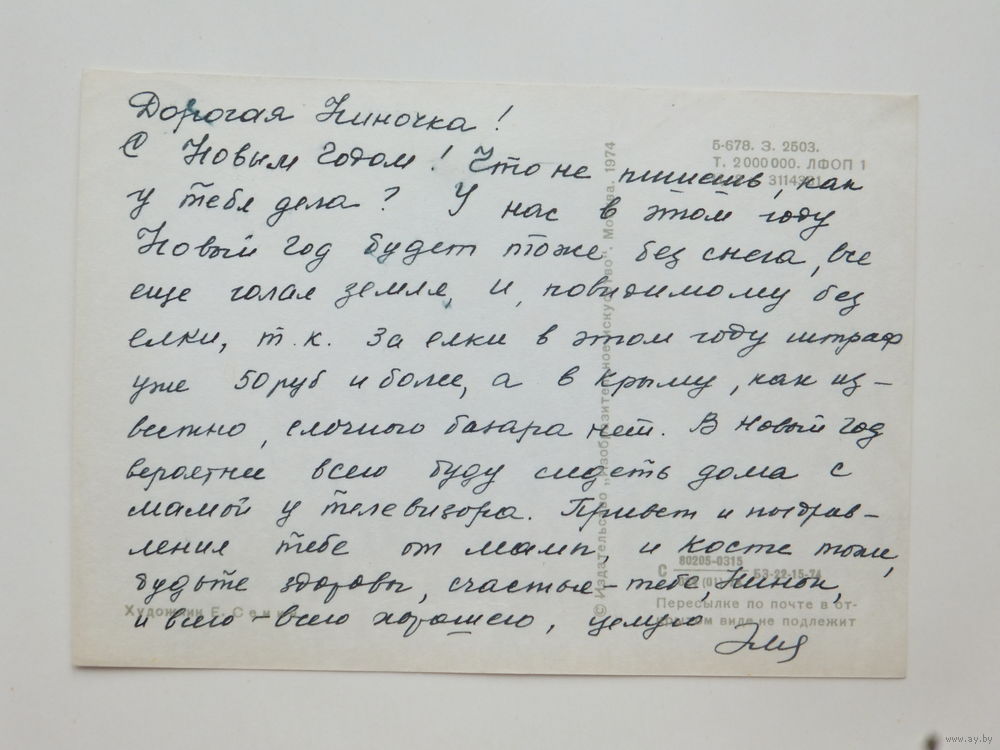 Дорогая Ниночка!
С Новым Годом! Что не пишешь, как
у тебя дела? У нас в этом году
Новый Год будет тоже без снега, все
еще голая земля, и, повидимому без
елки, т.к. за елки в этом году штраф
уже 50 руб и более, а в Крыму, как из-
вестно, елочного базара нет. В Новый Год
вероятнее всего буду сидеть дома с
мамой у телевизора. Привет и поздрав-
ления тебе от мамы, и Косте тоже,
будьте здоровы, счастья – тебе, Нинок,
и всего-всего хорошего, целую
Эмя
Б-678. З. 2503.
Т. 2 000 000. ЛФОП 1
© Издательство „Изобразительное искусство". Москва. 1974
С 80205-0315 53-22-15-74
Пересылке по почте в от-
крытом виде не подлежит
Художник Е.
www.ay.by